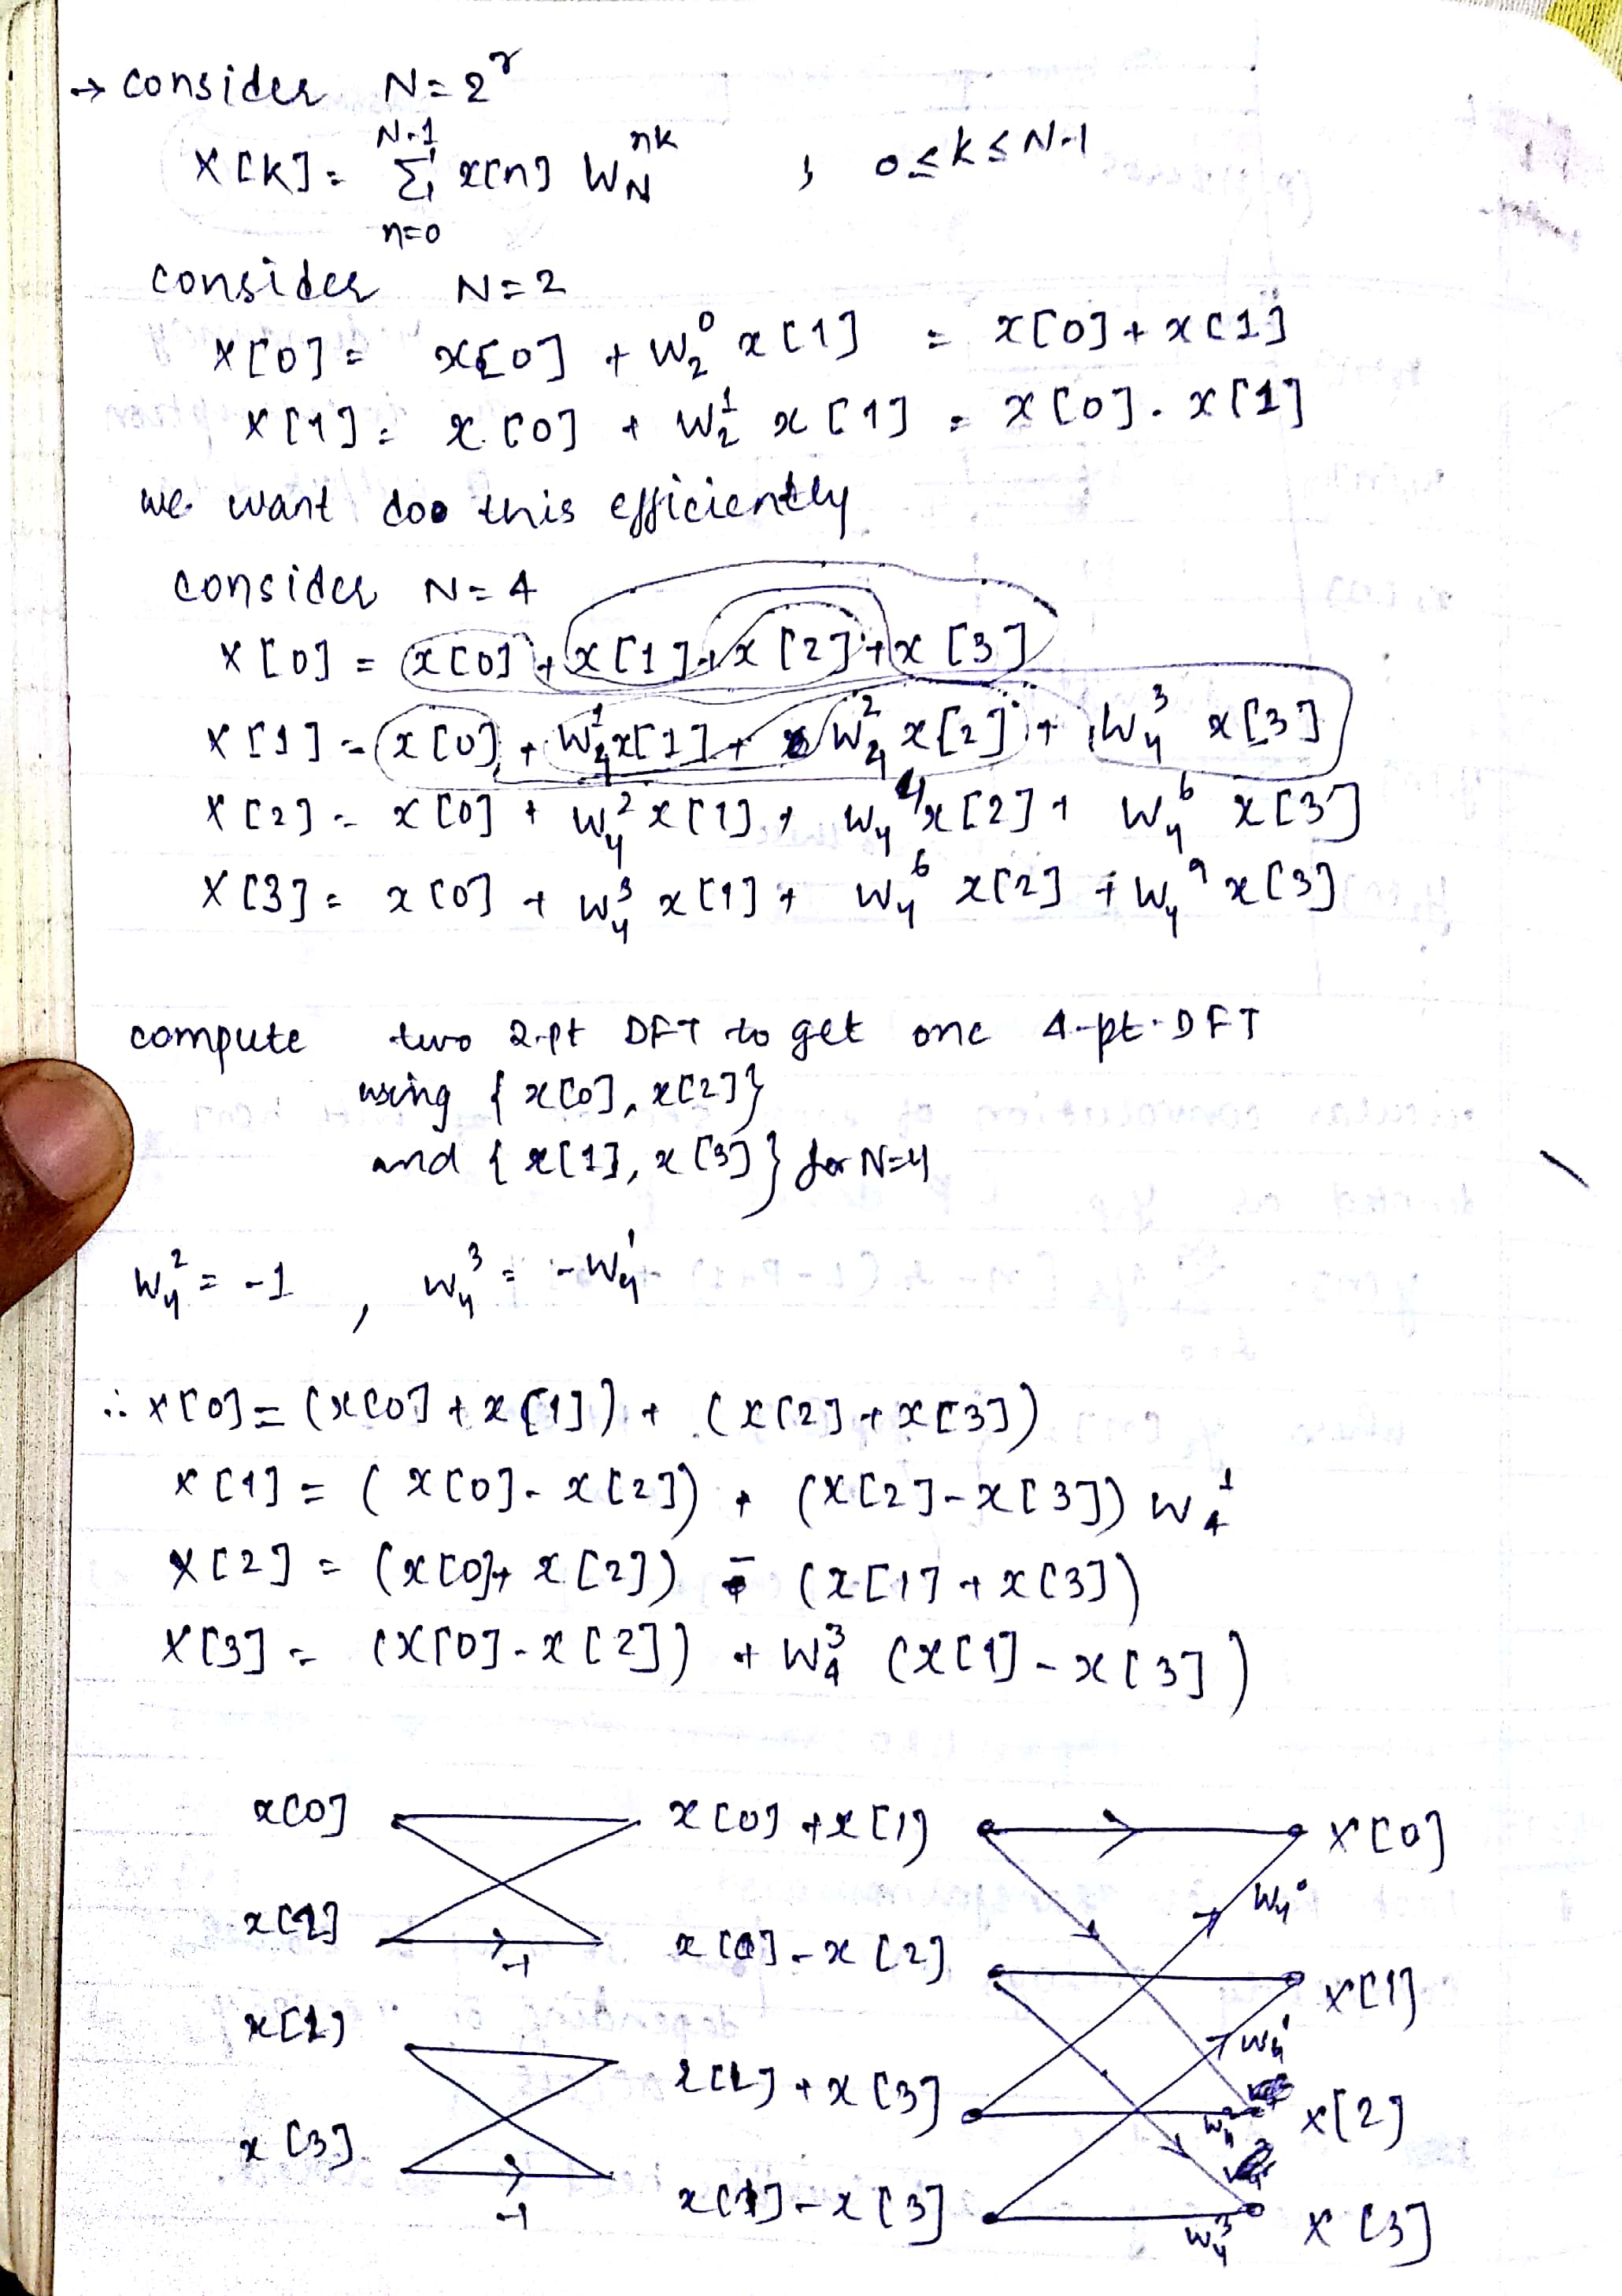 → consider N=2^r
X[k] = Σ_{n=0}^{N-1} x[n] W_N^{nk} ; 0≤k≤N-1
consider N=2
X[0] = x[0] + W_2^0 x[1] = x[0] + x[1]
X[1] = x[0] + W_2^1 x[1] = x[0] - x[1]
we want doo this efficiently
consider N=4
X[0] = x[0] + x[1] + x[2] + x[3]
X[1] = x[0] + W_4^1 x[1] + W_4^2 x[2] + W_4^3 x[3]
X[2] = x[0] + W_4^2 x[1] + W_4^4 x[2] + W_4^6 x[3]
X[3] = x[0] + W_4^3 x[1] + W_4^6 x[2] + W_4^9 x[3]
compute two 2-pt DFT to get one 4-pt-DFT
using {x[0], x[2]}
and {x[1], x[3]} for N=4
W_4^2 = -1 , W_4^3 = -W_4^1
∴ X[0] = (x[0] + x[1]) + (x[2] + x[3])
X[1] = (x[0] - x[2]) + (x[2] - x[3]) W_4^1
X[2] = (x[0] + x[2]) - (x[1] + x[3])
X[3] = (x[0] - x[2]) + W_4^3 (x[1] - x[3])
x[0] x[0] + x[1] X[0]
W_4^0
x[2] -1 x[0] - x[2] X[1]
x[1] W_4^1
x[1] + x[3] W_4^2 X[2]
x[3] -1
x[1] - x[3] W_4^3 X[3]